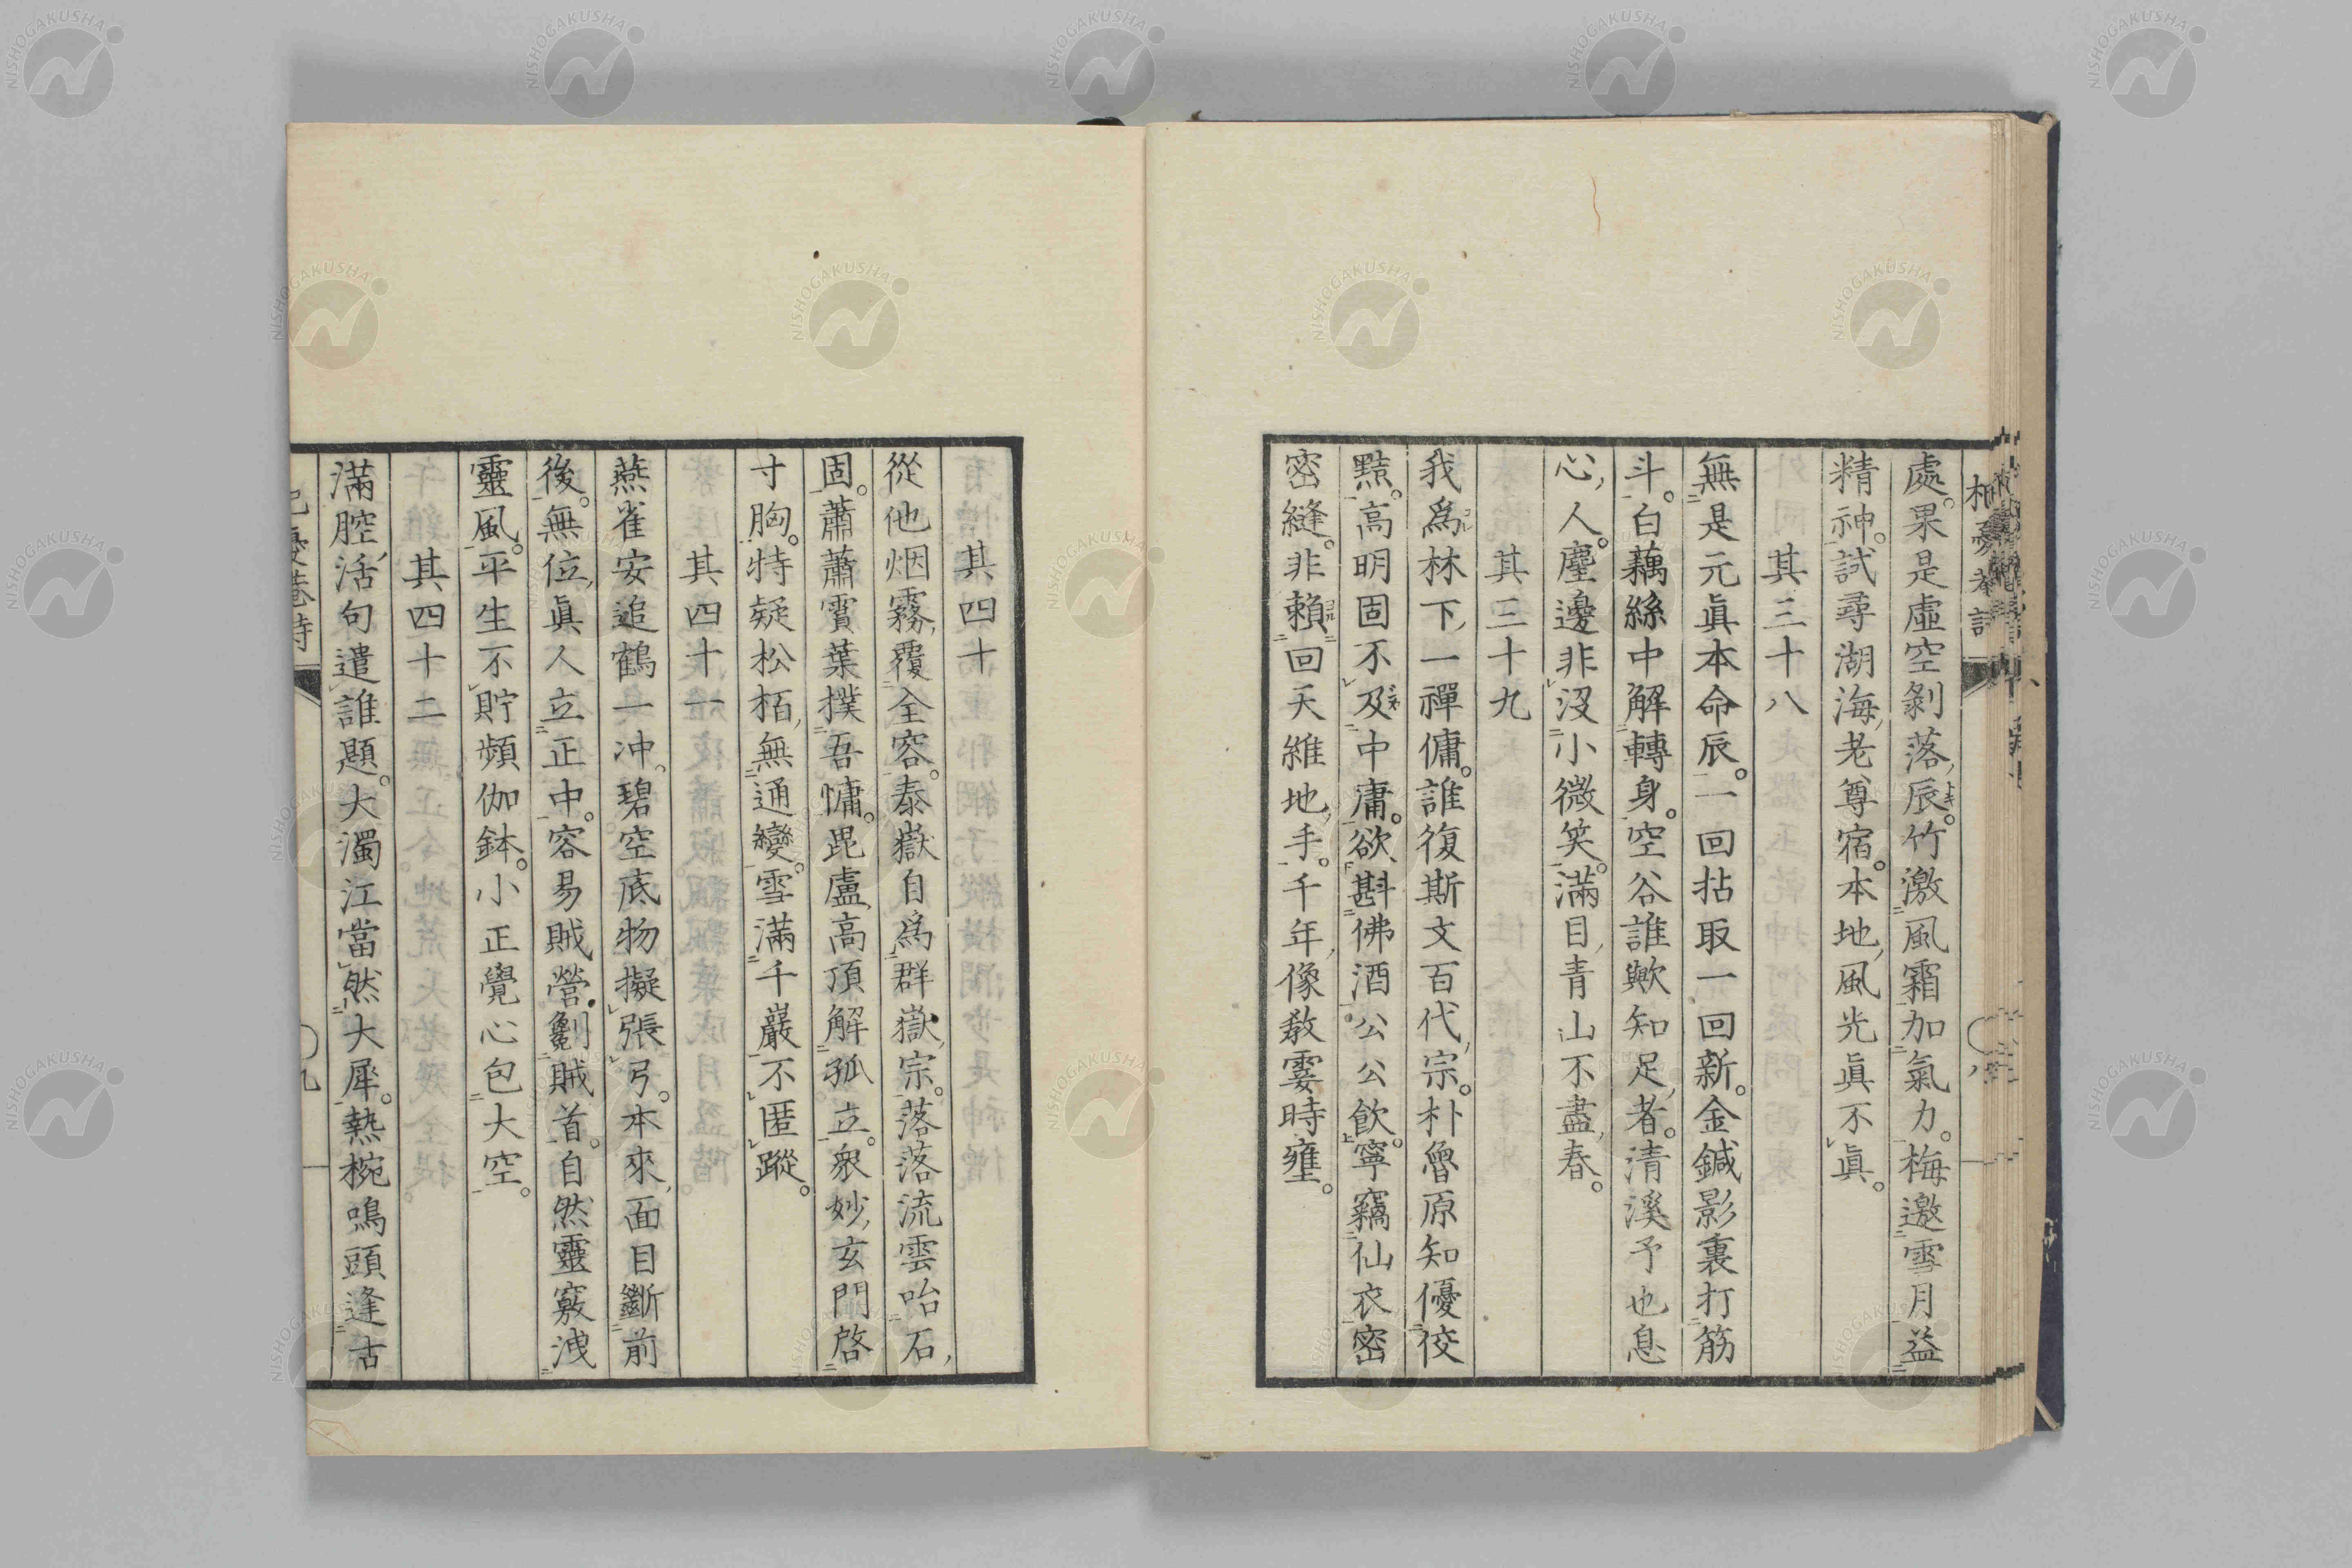 處。果是虛空剝落辰。竹激風霜加氣力。梅邀雪月益
精神。試尋湖海老尊宿。本地風光眞不眞。
其三十八
無是元眞本命辰。一回拈取一回新。金鍼影裏打筋
斗。白藕絲中解轉身。空谷誰歟知足者。清溪予也息
心人。塵邊非沒小微笑。滿目青山不盡春。
其三十九
我爲林下一禪傭。誰復斯文百代宗。朴魯原知優佼
黠。高明固不及中庸。欲斟佛酒公公飮。寧竊仙衣密
密縫。非賴回天維地手。千年像教霎時壅。
其四十
從他烟霧覆全容。泰嶽自爲群嶽宗。落落流雲咍石
固。蕭蕭霣葉撲吾慵。毘盧高頂解孤立。衆妙玄門啓
寸胸。特疑松栢無通變。雪滿千巖不匿蹤。
其四十一
燕雀安追鶴一冲。碧空底物擬張弓。本來面目斷前
後。無位眞人立正中。容易賊營劖賊首。自然靈竅洩
靈風。平生不貯頻伽鉢。小正覺心包大空。
其四十二
滿腔活句遣誰題。大濁江當然大犀。熱椀鳴頭逢古
NISHOGAKUSHA